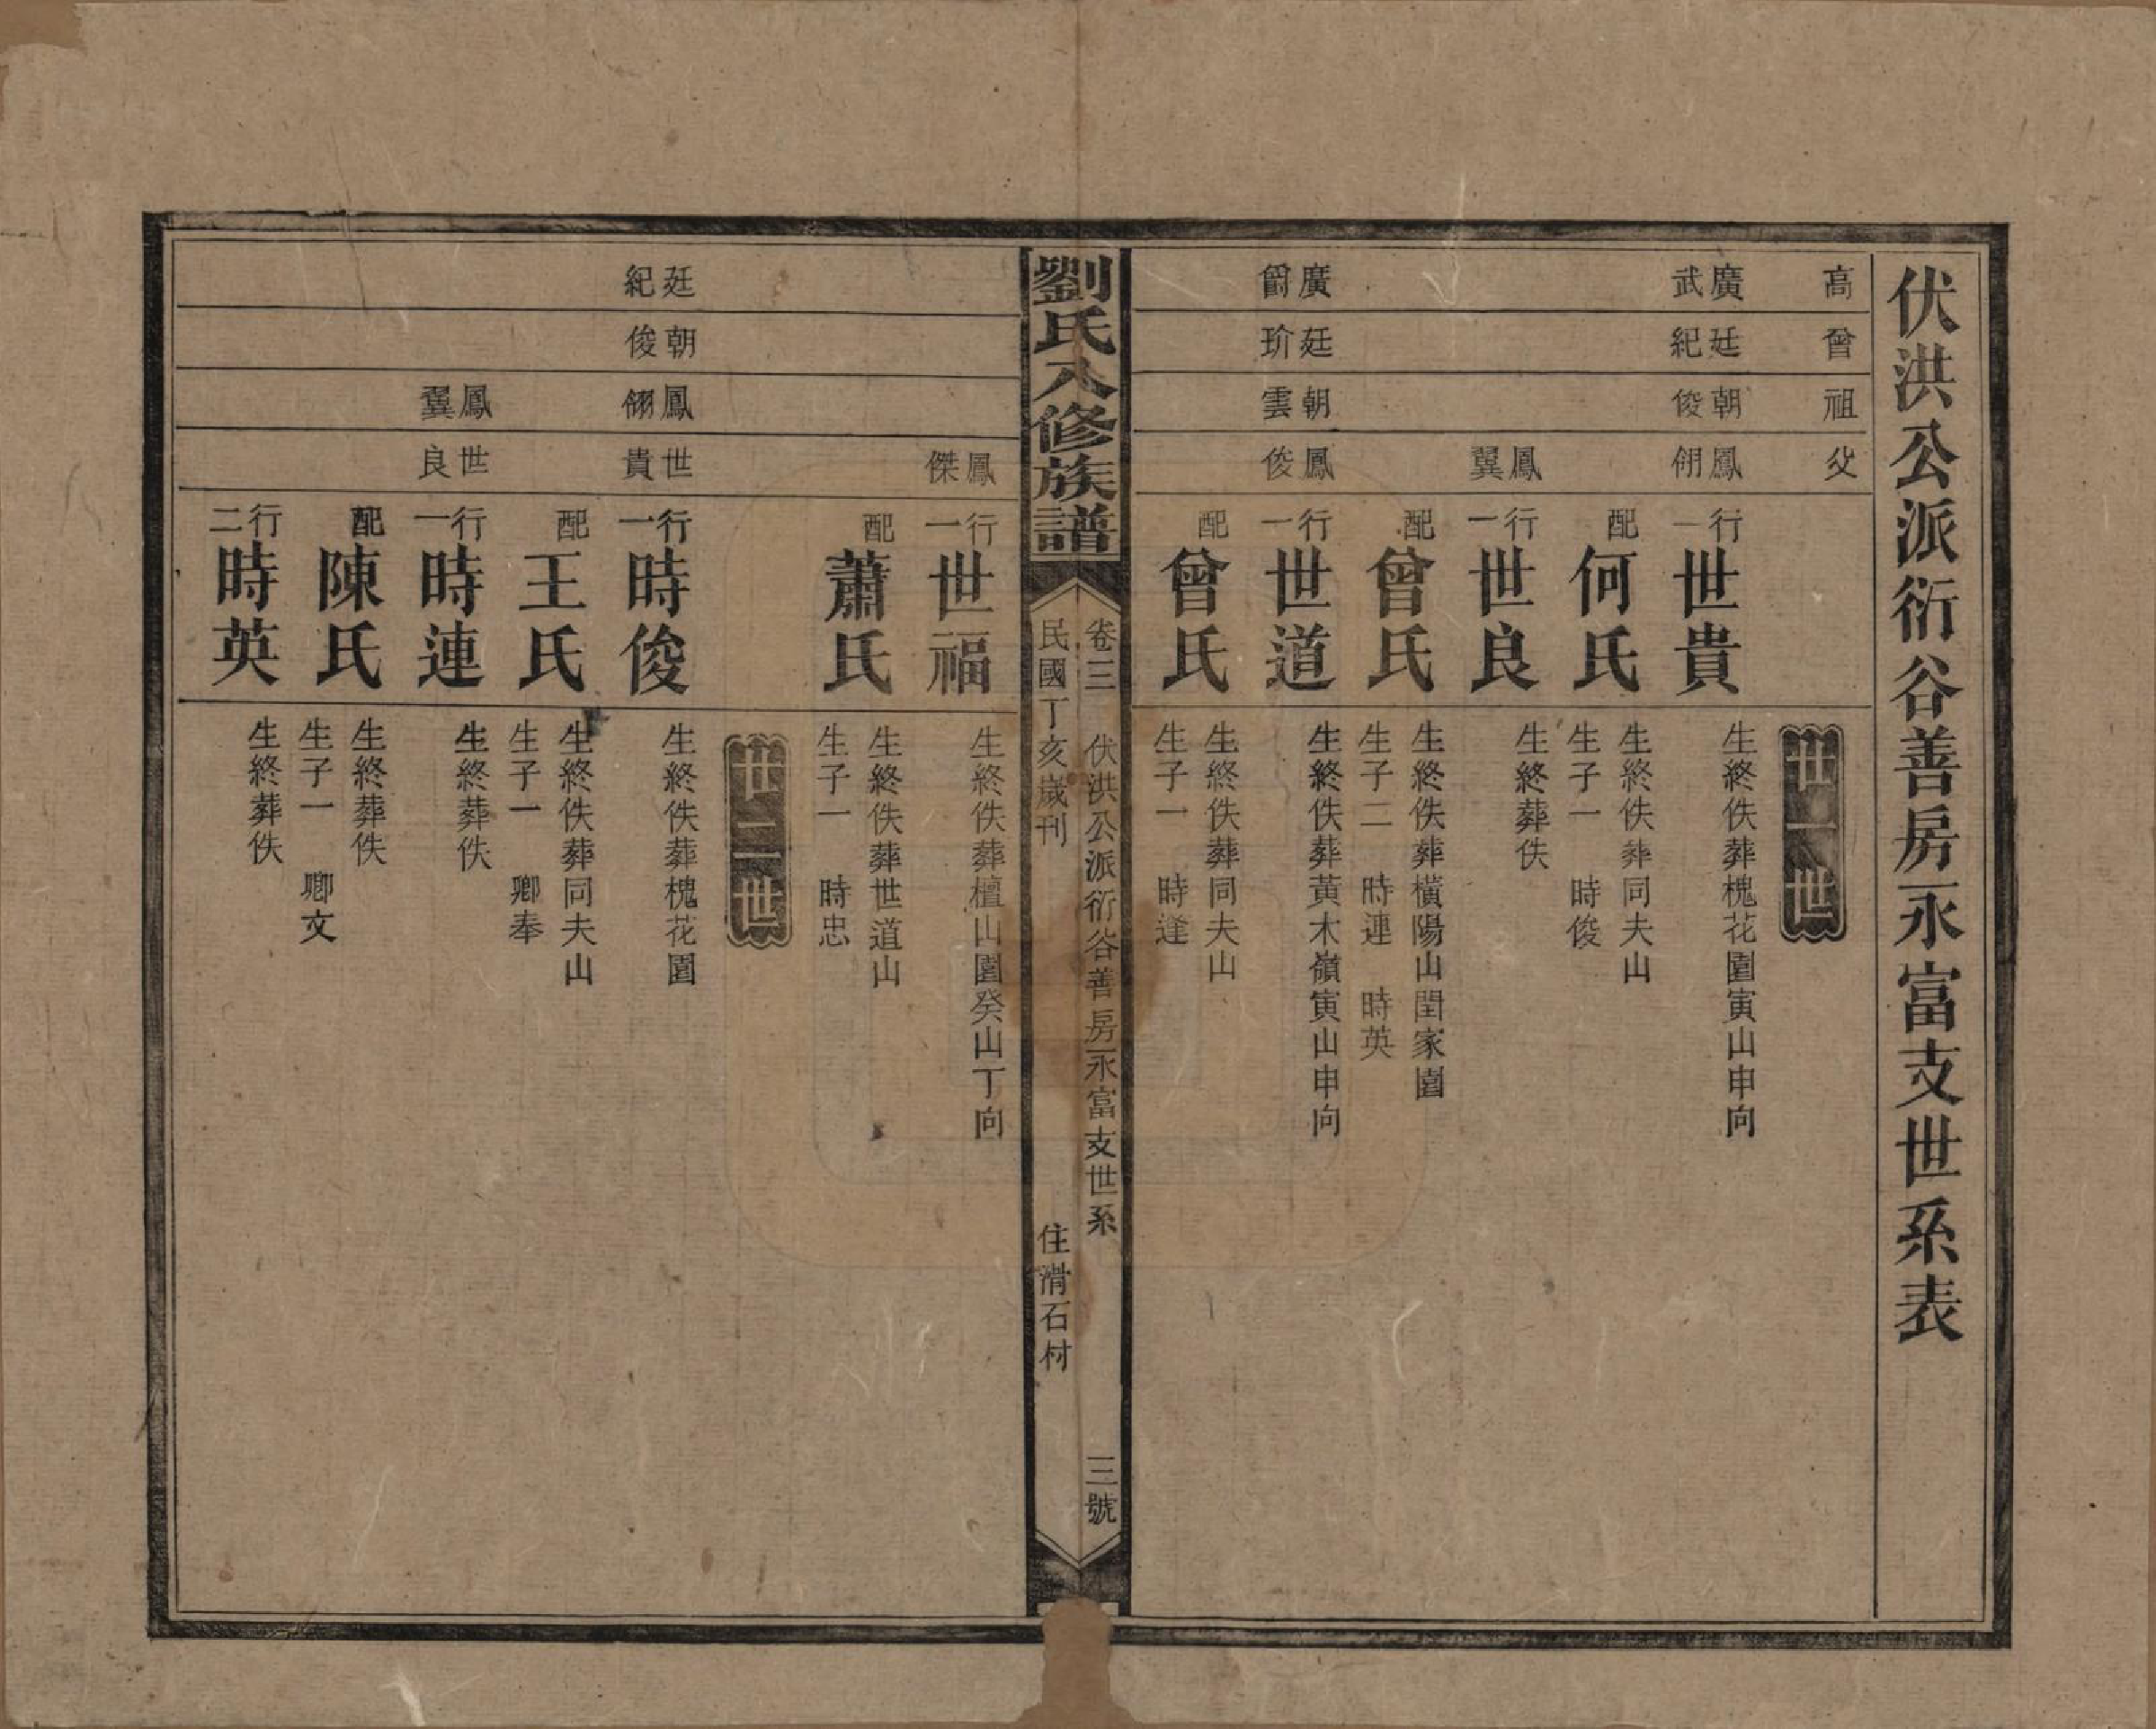 伏洪公派衍谷善房永富支世系表
高
曾
祖
父
卅一世
廣武
廷紀
朝俊
鳳翎
行一
世貴
生終佚葬槐花園寅山申向
配
何氏
生終佚葬同夫山
生子一 時俊
鳳翼
行一
世良
生終葬佚
配
曾氏
生終佚葬橫陽山閏家園
生子二 時連 時英
廣爵
廷玠
朝雲
鳳俊
行一
世道
生終佚葬黃木嶺寅山申向
配
曾氏
生終佚葬同夫山
生子一 時逢
劉氏八修族譜
卷三 伏洪公派衍谷善房永富支世系 三號
民國丁亥歲刊 住滑石村
鳳傑
行一
世福
生終佚葬檀山園癸山丁向
配
蕭氏
生終佚葬世道山
生子一 時忠
卅二世
廷紀
朝俊
鳳翎
世貴
行一
時俊
生終佚葬槐花園
配
王氏
生終佚葬同夫山
生子一 卿奉
鳳翼
世良
行一
時連
生終葬佚
配
陳氏
生終葬佚
生子一 卿文
行二
時英
生終葬佚